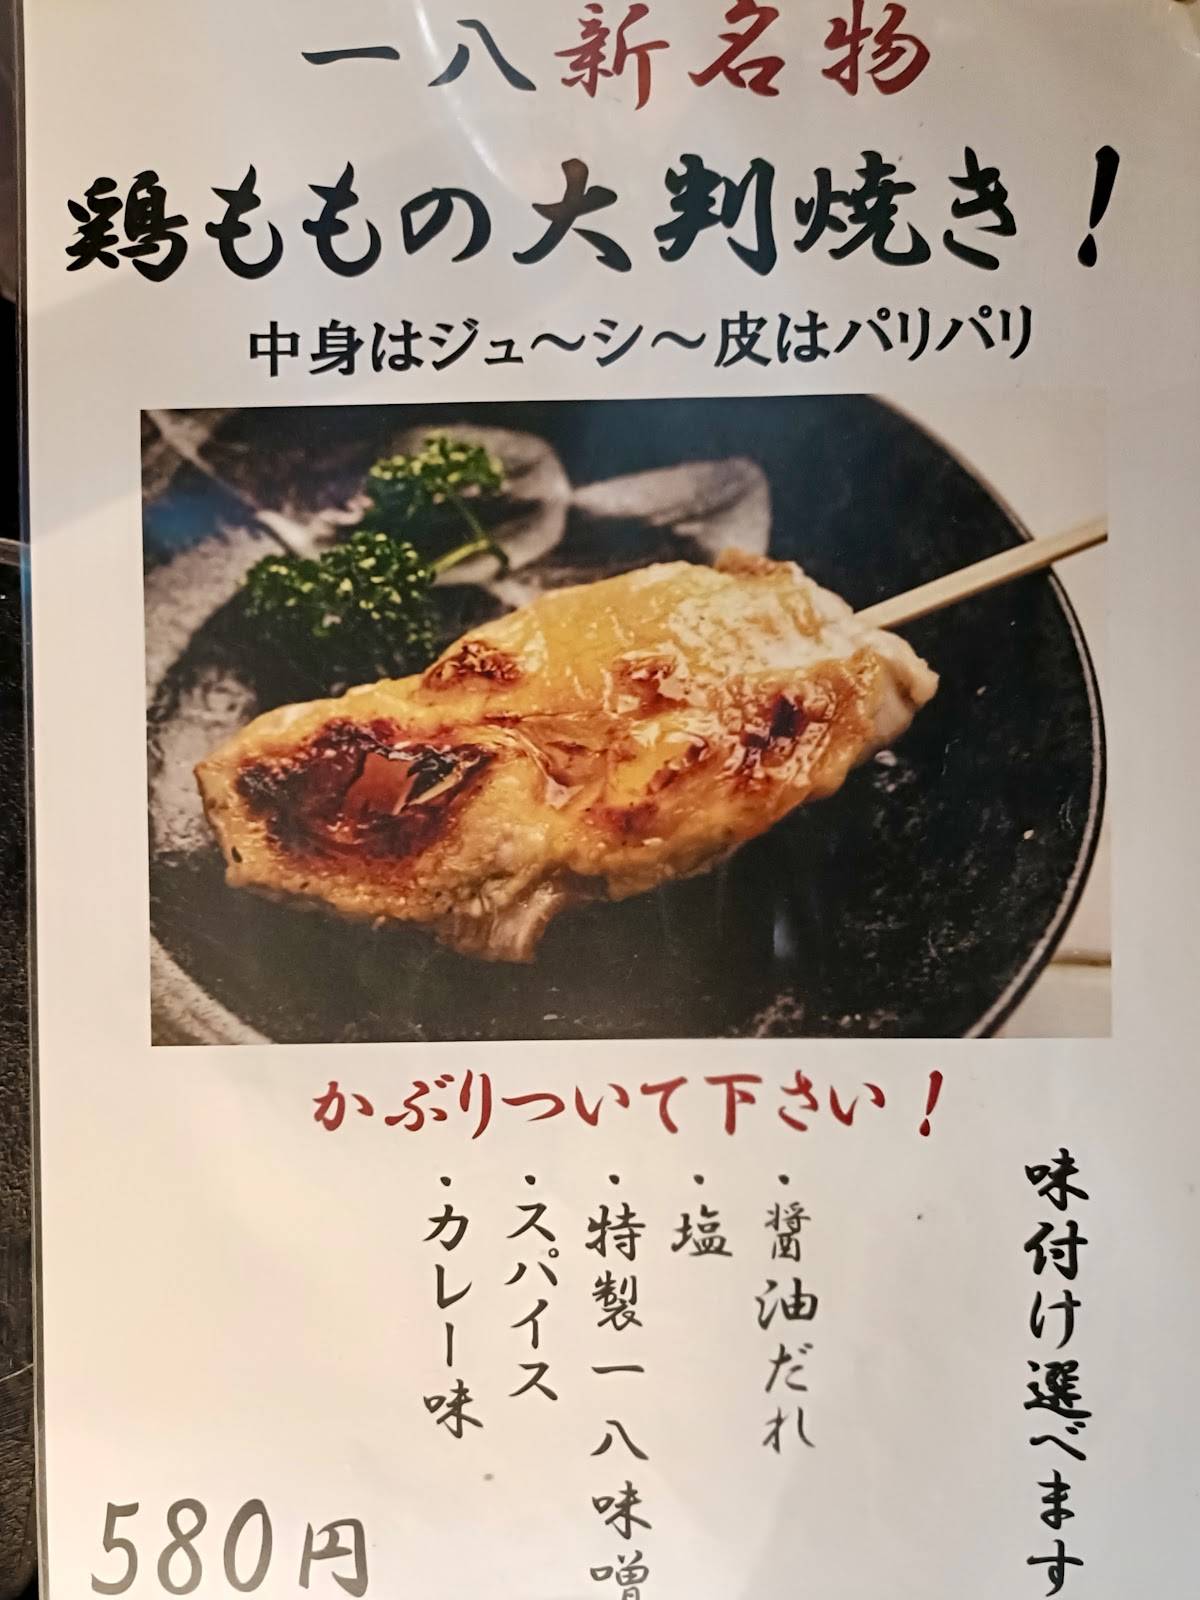 一八新名物
鶏ももの大判焼き！
中身はジュ～シ～皮はパリパリ
かぶりついて下さい！
味付け選べます
・醤油だれ
・塩
・特製一八味噌
・スパイス
・カレー味
580円